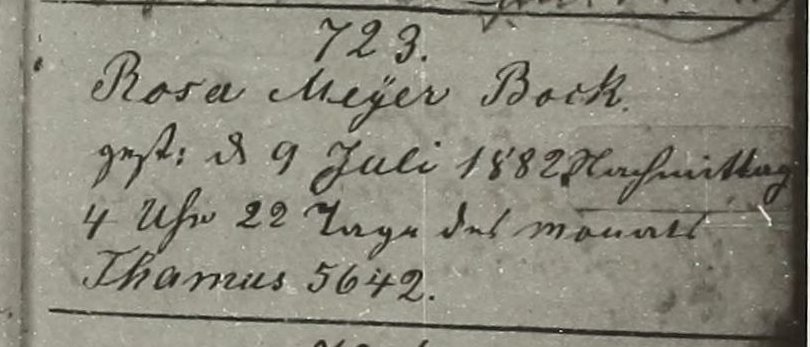 723.
Rosa Meÿer Bock.
gest: d 9 Juli 1882 Nachmittag
4 Uhr 22 Tage des Monats
Thamus 5642.